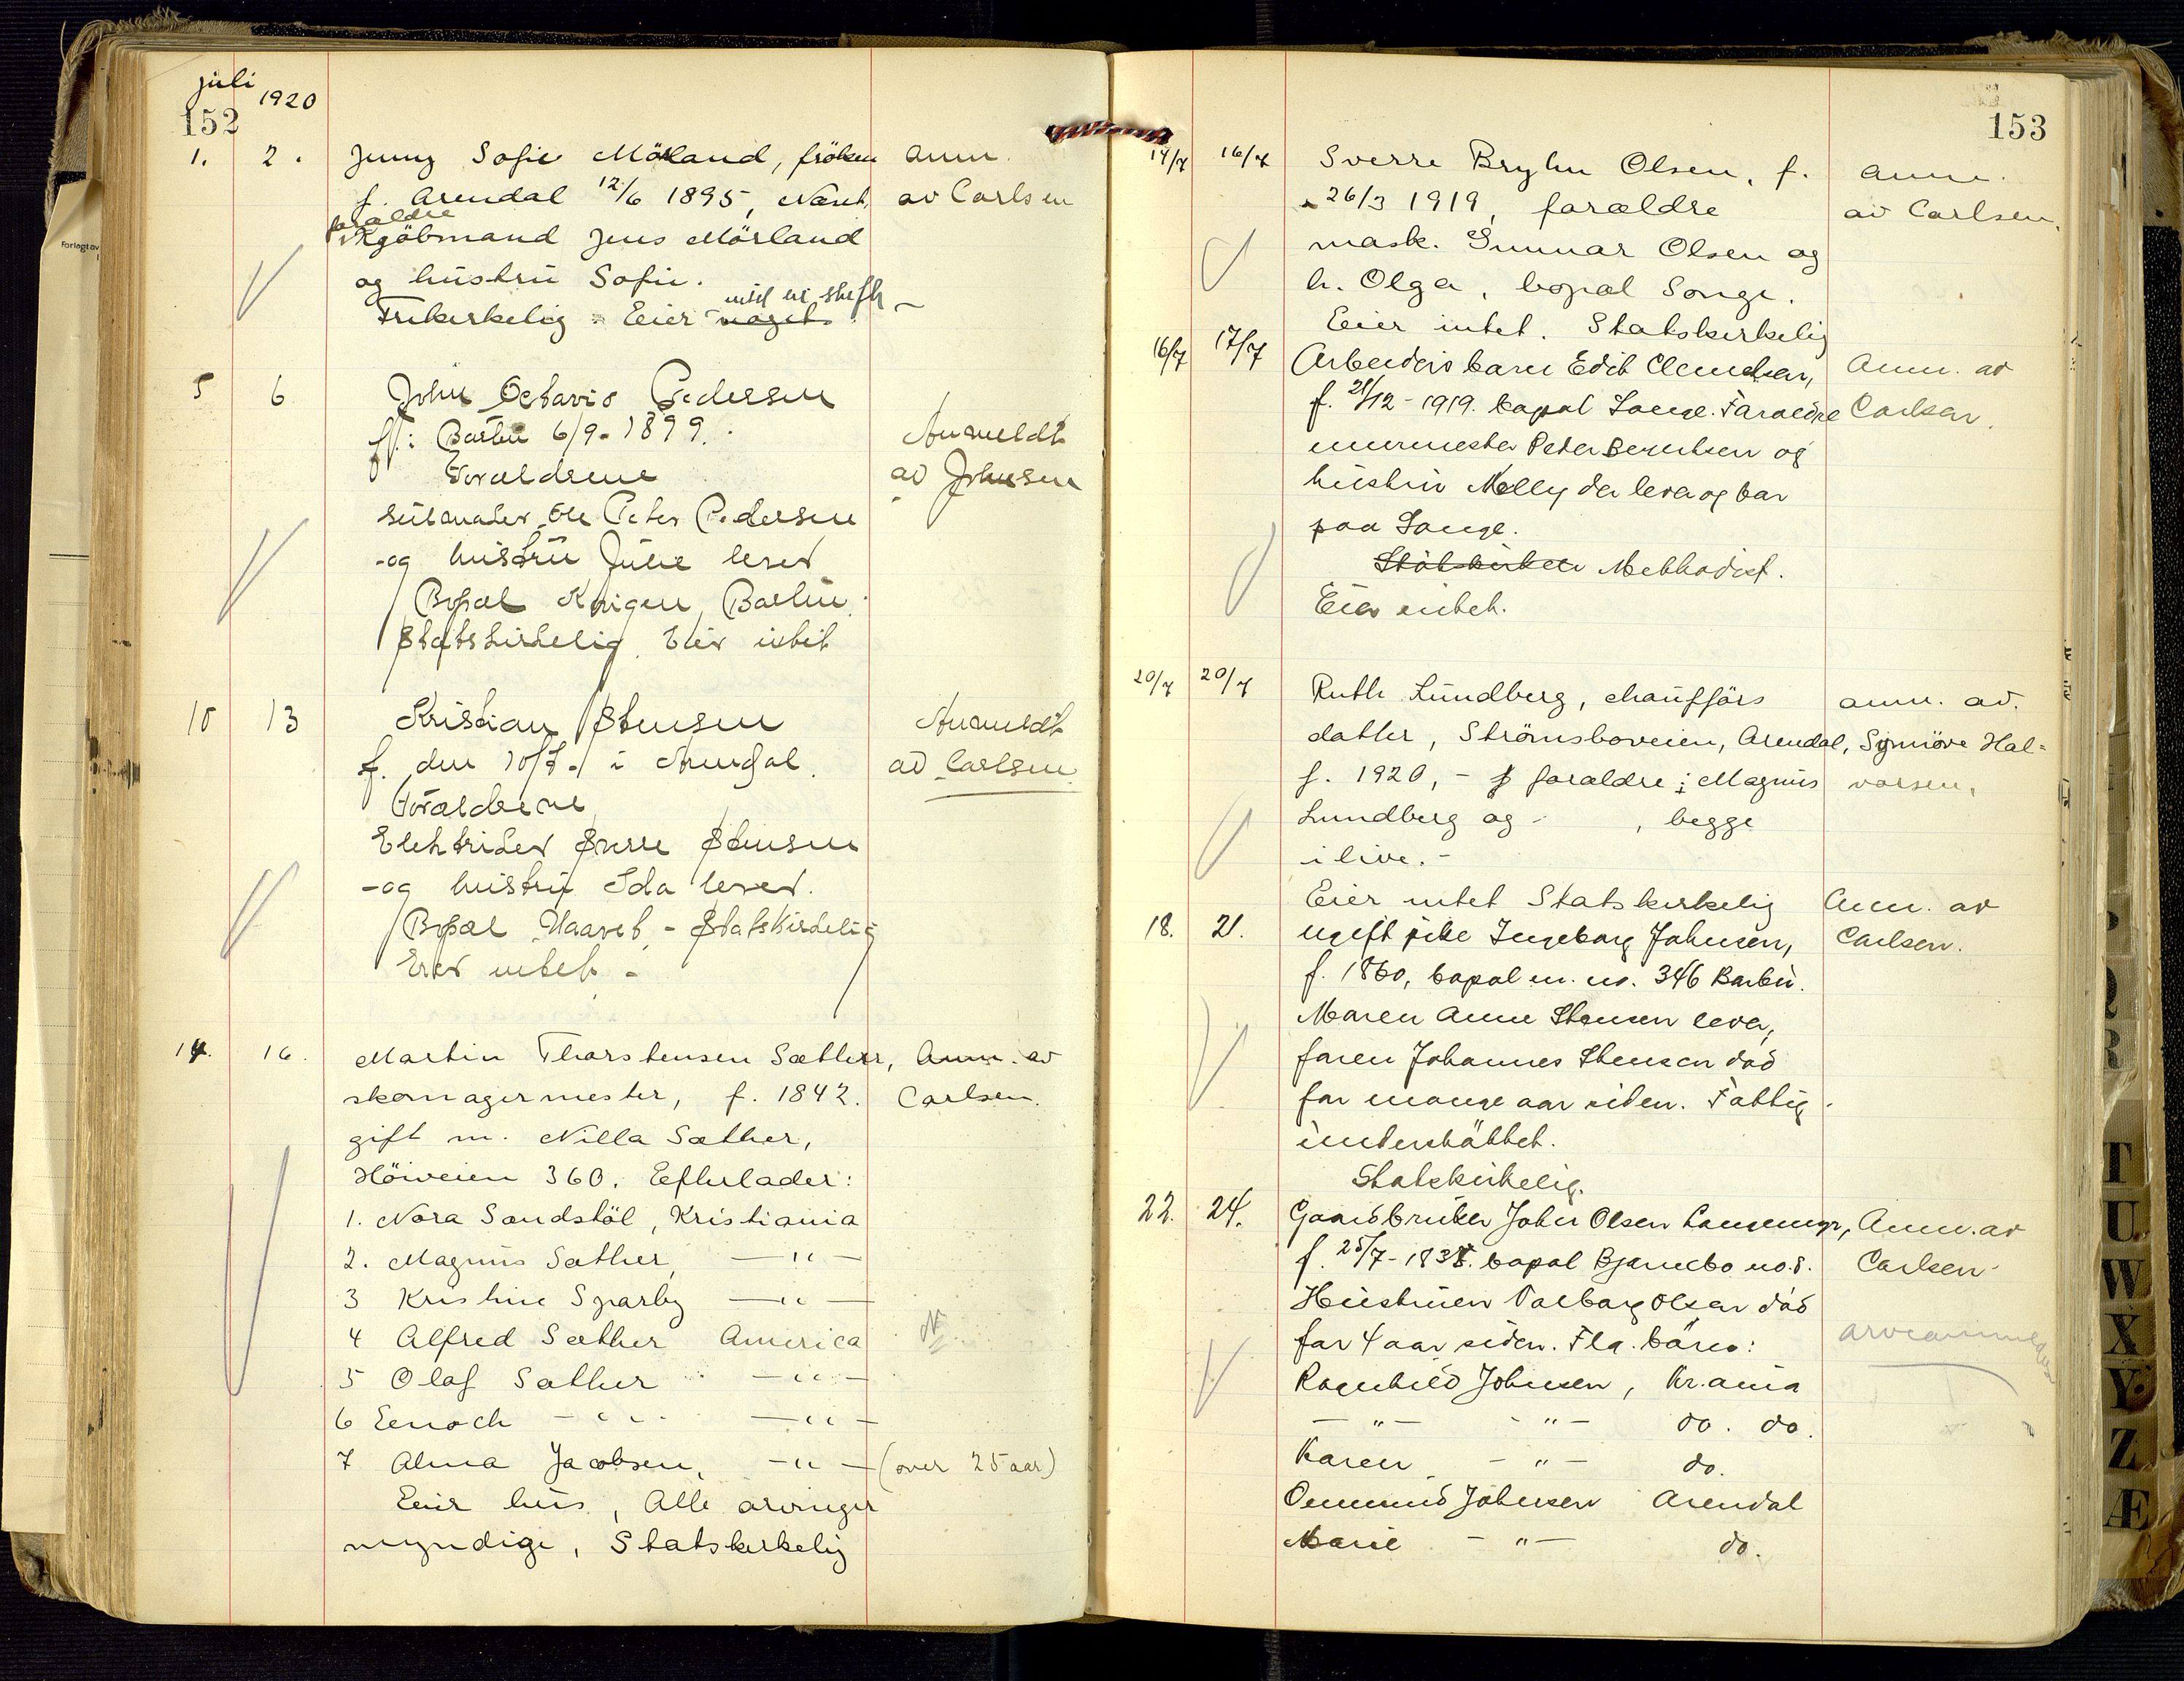 juli
1920
152
1. 2. Jenny Sofie Mörland, fröken anm.
f. Arendal 12/6 1895, Næset, av Carlsen
forældre
Kjöbmand Jens Mörland
og hustru Sofie.
Frikirkelig - Eier noget
5 6 John Octavio Pedersen
f. i Barbu 6/9-1899. Anmeldt
Forældrene av Johnsen
Ole Peter Pedersen
-og hustru Julie lever
Bopæl Barbu.
Statskirkelig. Eier intet
10 13 Kristian Stensen Anmeldt
f. den 10/7. i Arendal. av Carlsen
Forældrene
Elektriker Sverre Stensen
-og hustru Ida lever.
Bopæl Haavet - Statskirkelig
Eier intet -
14. 16. Martin Thorstensen Sæther, Anm. av
skomagermester, f. 1842. Carlsen.
gift m. Nilla Sæther,
Höiveien 360. Efterlader:
1. Nora Sandstöl, Kristiania
2. Magnus Sæther, — " —
3 Kristine Sparby — " —
4 Alfred Sæther America
5 Olaf Sæther — " —
6 Eenoch — " — — " —
7 Alma Jacobsen, — " — (over 25 aar)
Eier hus, Alle arvinger
myndige, Statskirkelig
153
14/7 16/7 Sverre Bryhn Olsen, f. anm.
26/3 1919, forældre av Carlsen.
mask. Gunnar Olsen og
h. Olga, bopæl Songe.
Eier intet. Statskirkelig
16/7 17/7 Arbeiders barn Edit Clemetsen, Anm. av
f. 21/12-1919. bopæl Songe. Foræeldre Carlsen.
murmester Peter Berntsen og
hustru Nelly der lever og bor
paa Songe.
Statskirken Methodist.
Eier intet.
20/7 20/7 Ruth Lundberg, chaufförs anm. av.
datter, Strömsboveien, Arendal, Synnöve Hal-
f. 1920, - forældre: Magnus vorsen,
Lundberg og - , begge
i live. -
Eier intet Statskirkelig Anm. av
18. 21. ugift pike Ingeborg Johnsen, Carlsen.
f. 1860, bopæl m. no. 346 Barbu.
Maren Anne Stensen lever,
faren Johannes Stensen död
for mange aar siden. Fattig-
understöttet.
Statskirkelig.
22. 24. Gaardbruker John Olsen Langemyr, Anm. av
f. 25/7-1838. bopæl Bjørnebo no. 8. Carlsen
Hustruen Valborg Olsen död
for 4 aar siden. Fla. börn: arveanmeldes
Ragnhild Johnsen, Kr.ania
— " — — " — do. do.
Karen — " — do.
Ommund Johnsen Arendal
Marie — " — do.